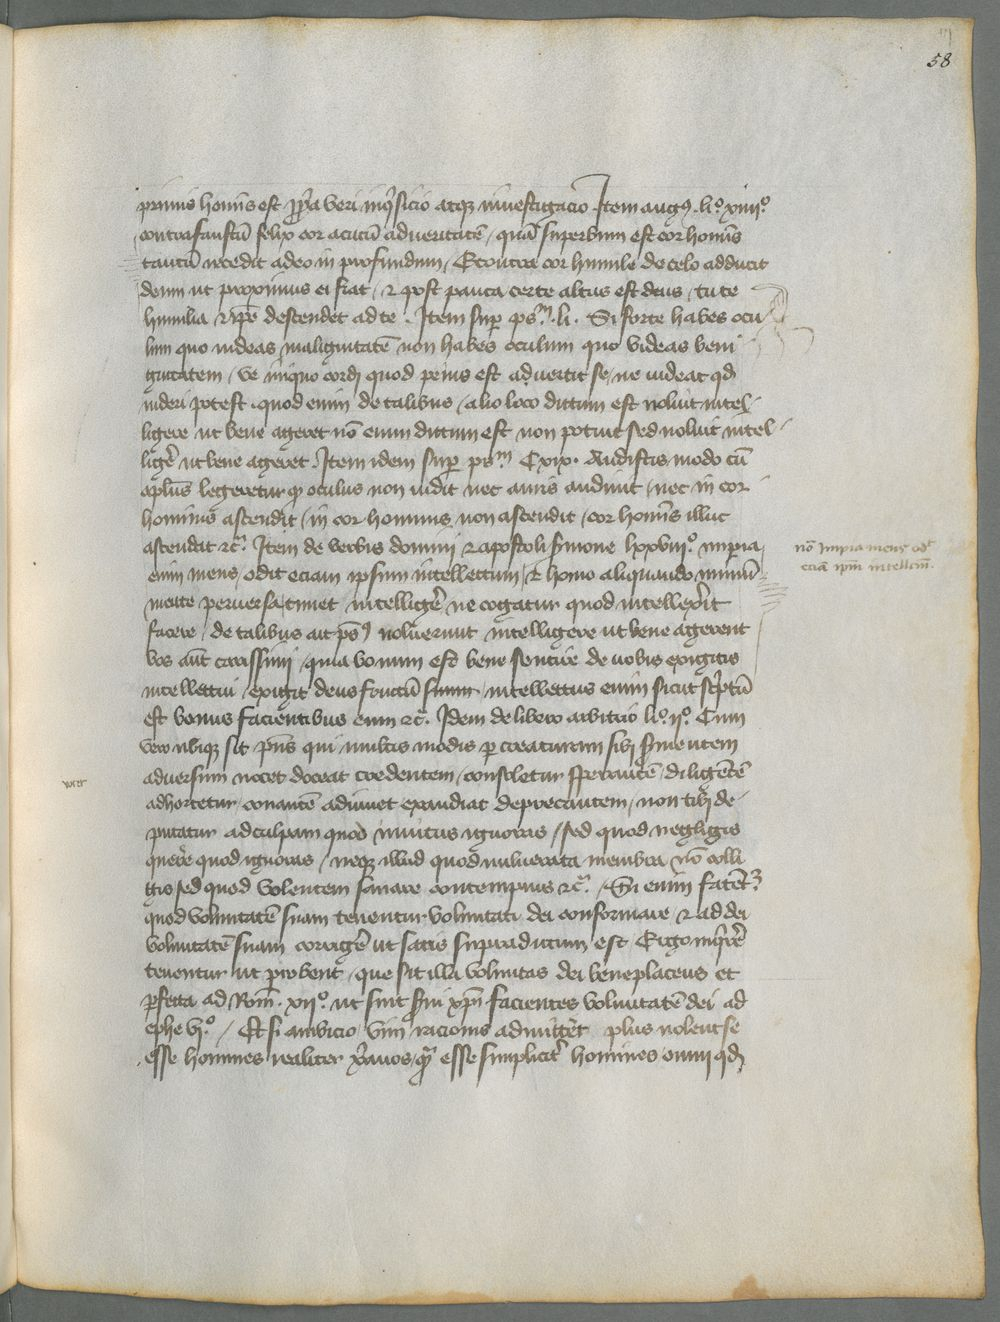 58
primis hominis est ꝓpria veri inquisicio atqꝫ investigacio Item augꝯ. li.º xiiii.º
contra faustū felix cor acutū ad veritatē / quā superbum est cor hominis
tantū recedit a deo in profundum / Econtra cor humile de celo adducit
deum ut proximus ei fiat / ⁊ post pauca certe altus est deus / tu te
humilia ⁊ ip̄e descendet ad te . Item suꝑ ps.m li . Si forte habes ocu
lum quo uideas malignitatē non habes oculum quo videas beni
gnitatem / ve iniquo cordi quod peius est advertit se / ne uideat qd
uideri potest . quod enim de talibus / alio loco dictum est noluit intel
ligere ut bene ageret nō enim dictum est non potuit sed noluit intel
ligere ut bene ageret . Item idem suꝑ ps.m Cxix . Audistis modo cū
apl̄us legeretur ꝙ oculus non uidit nec auris audiuit / nec in cor
hominis ascendit / in cor hominis non ascendit / cor hominis illuc
ascendat ⁊c̄. Item de verbis domini ⁊ apostoli sermone lxxviii.º impia
enim mens / odit eciam ipsum intellectum / ⁊ homo aliquando nimiū
mente perversa timet intelligere ne cogatur quod intellexerit
facere / de talibus ait psꝯ noluerunt intelligere ut bene agerent
vos aūt carissimi / quia bonum est bene sentire de uobis exigitis
intellectui / exigit deus fructū suum / intellectus enim sicut scriptū
est bonus facientibus eum ⁊c̄. Idem de libero arbitrio li.º ii.º Cum
vero ubiqꝫ sit p̄ns qui multis modis per creaturam sibi servientem
adversum vocet doceat credentem / consoletur sperantē / diligentē
adhortetur / conantē adiuuet exaudiat deprecantem / non tibi de
putatur ad culpam quod inuitus ignoras / sed quod negligis
querere quod ignoras / neqꝫ illud quod uulnerata membra nō colli
gis sed quod volentem sanare contempnis ⁊c̄. / Si enim fatentꝫ
quod voluntatē suam tenentur voluntati dei conformare ⁊ ad dei
voluntatē suam corrigere ut satis supra dictum est Ergo inquirere
tenentur ut probent / que sit illa voluntas dei beneplacens et
ꝑfecta ad Rom̄. xii.º ut sint servi xp̄i facientes voluntatē dei ad
ephe vi.º / Et si vim racionis admitteret plus uolent se
esse homines realiter esse simpliciter homines omni qd
nō Impia mens odit
eciā ip̄m intellcm̄.